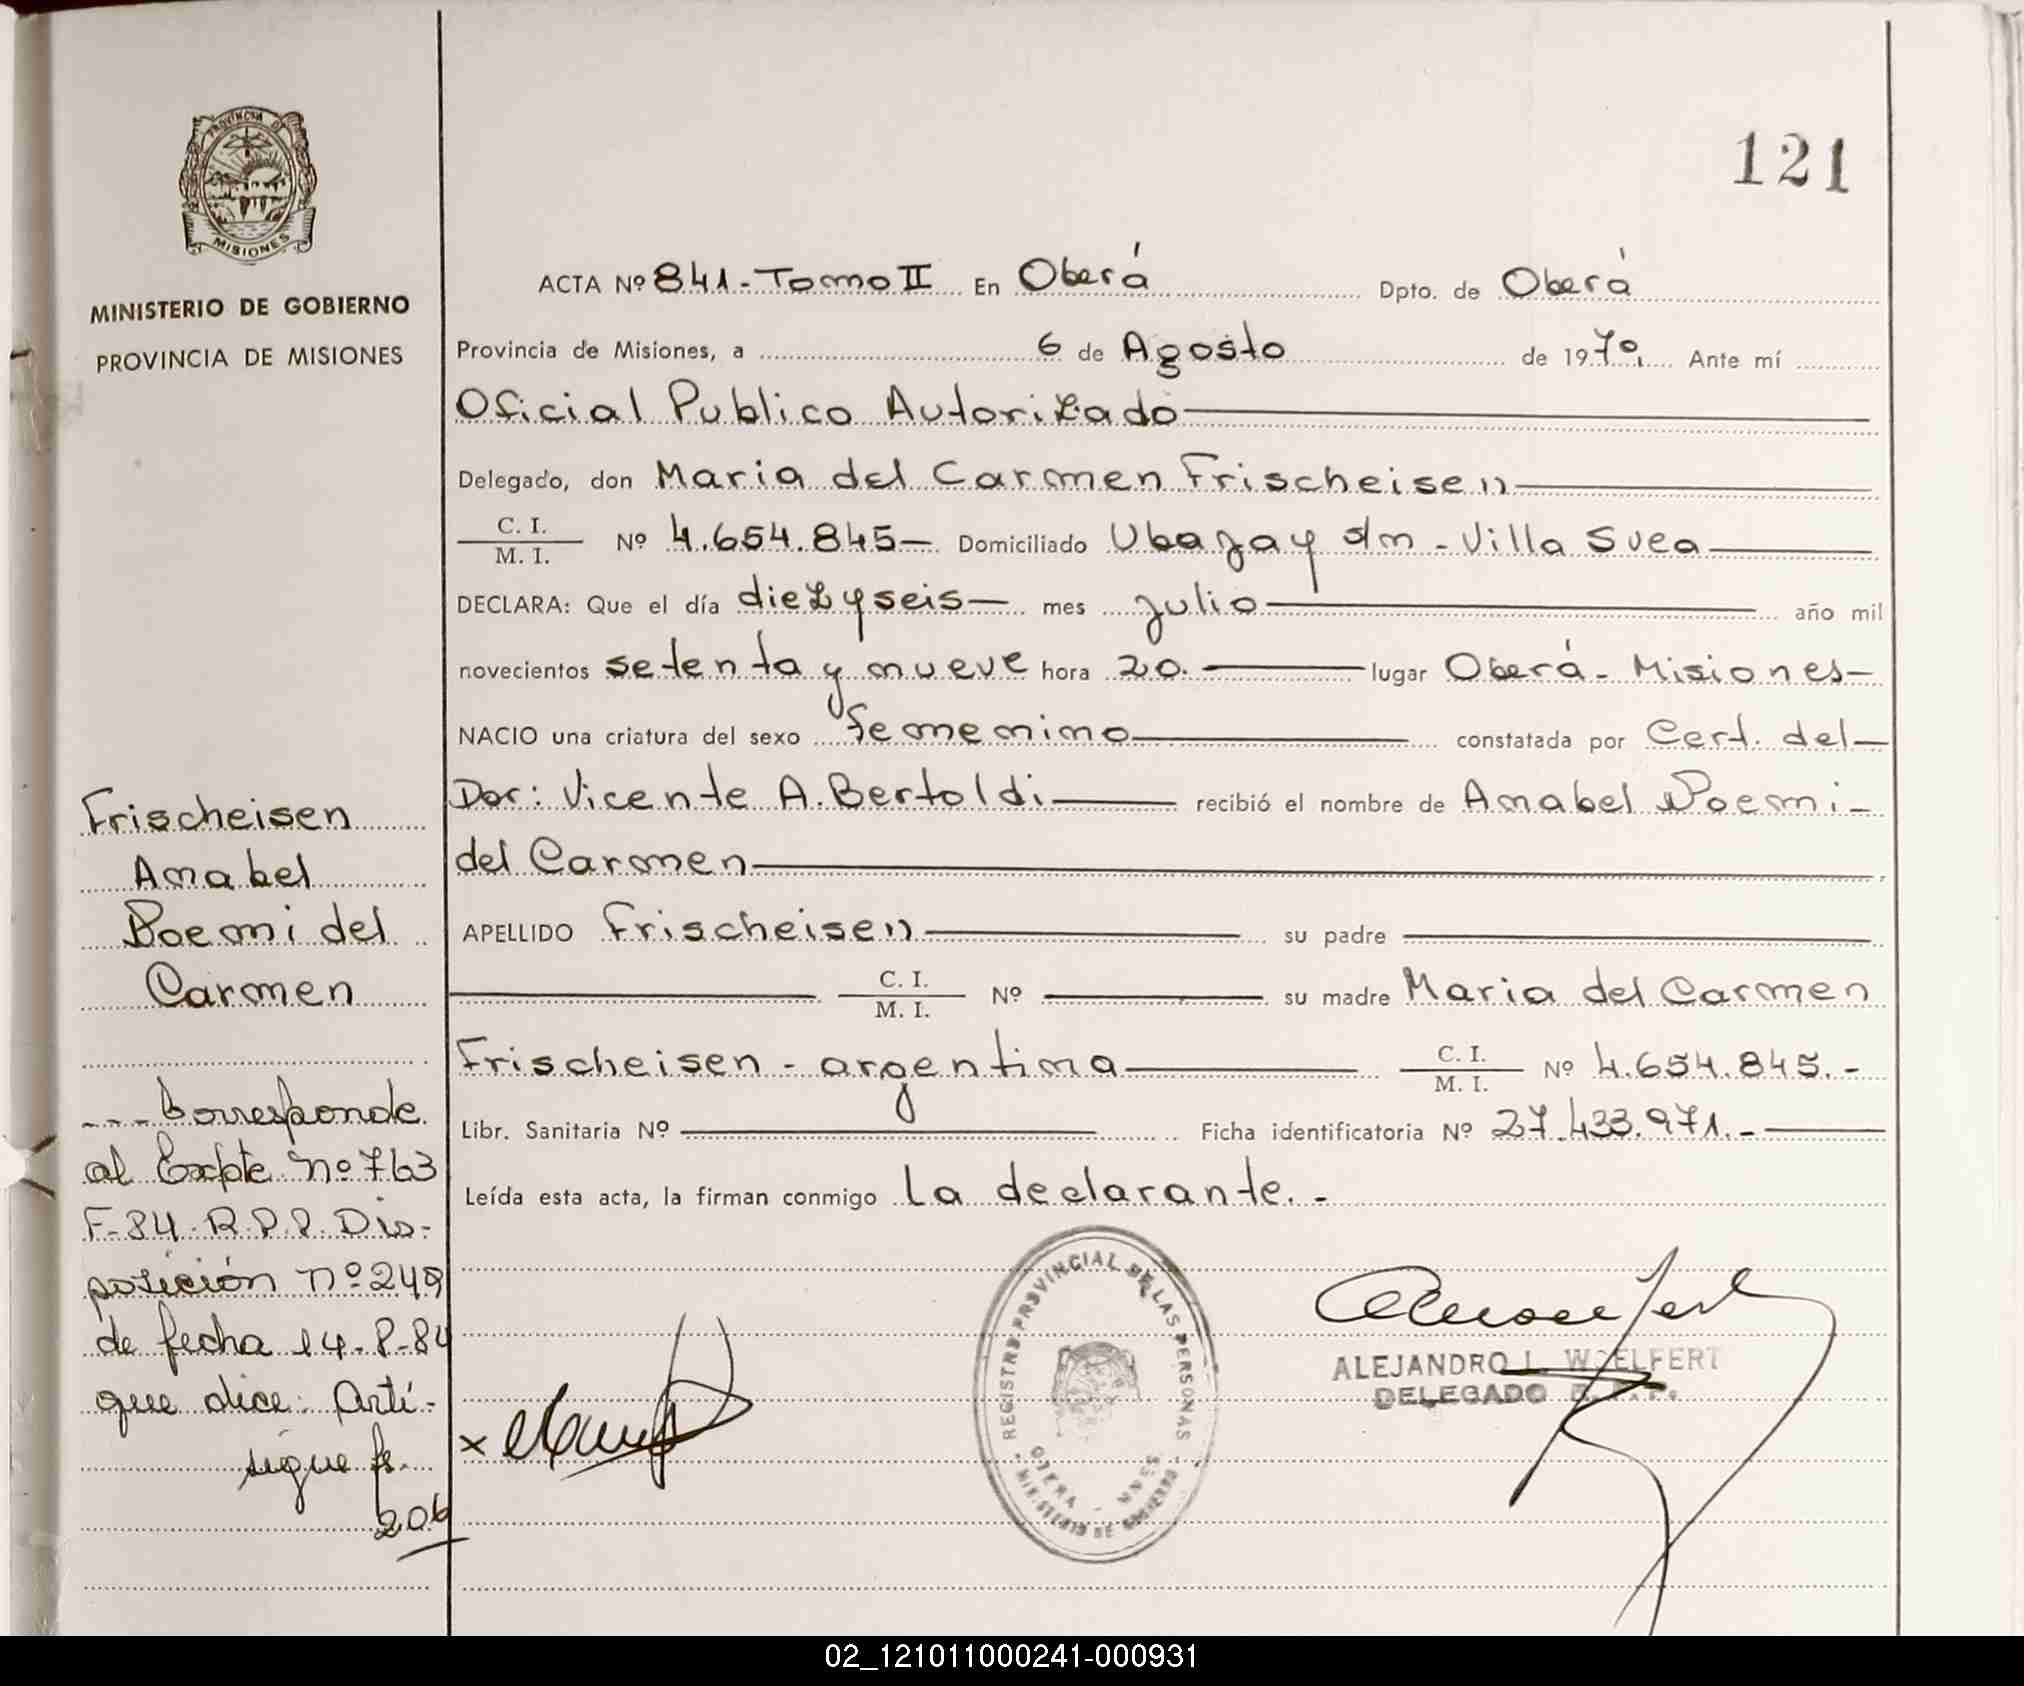 PROVINCIA DE
MISIONES
MINISTERIO DE GOBIERNO
PROVINCIA DE MISIONES
121
ACTA Nº 841 - Tomo II En Oberá Dpto. de Oberá
Provincia de Misiones, a 6 de Agosto de 1979. Ante mí
Oficial Publico Autorizado
Delegado, don Maria del Carmen Frischeisen
C. I. / M. I. Nº 4.654.845 - Domiciliado Ubajay s/n - Villa Svea
DECLARA: Que el día diezyseis - mes julio año mil
novecientos setenta y nueve hora 20. lugar Oberá - Misiones -
NACIO una criatura del sexo femenino constatada por Cert. del -
Dor: Vicente A. Bertoldi recibió el nombre de Anabel Noemi -
del Carmen
APELLIDO Frischeisen su padre
C. I. / M. I. Nº su madre Maria del Carmen
Frischeisen - argentina C. I. / M. I. Nº 4.654.845. -
Libr. Sanitaria Nº Ficha identificatoria Nº 27.433.971. -
Leída esta acta, la firman conmigo la declarante. -
Frischeisen
Anabel
Noemi del
Carmen
--- Corresponde
al Expte Nº 763
F-84 R.P.P. Dis-
posición nº 249
de fecha 14-8-84
que dice: Artí-
sigue fs.
206
x
REGISTRO PROVINCIAL DE LAS PERSONAS
OBERA - MNES
MINISTERIO DE GOBIERNO
ALEJANDRO L. WOELFERT
DELEGADO R.P.P.
02_121011000241-000931